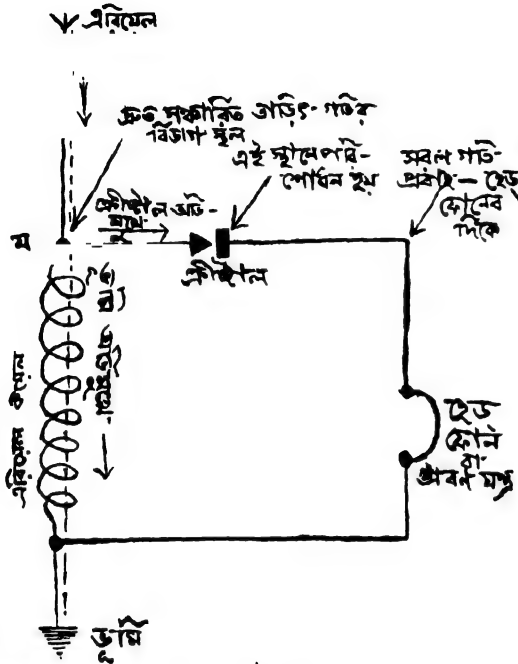 এরিয়েল
দ্রুত সঞ্চারিত তড়িৎ-গতির
বিভাগ স্থল
এই স্থানে পরি-
শোধন হয়
সবল গতি-
প্রবাহ — হেড
ফোনের
দিকে
ক্রীষ্টাল অভি-
মুখে
ম
ক্রীষ্টাল
এরিয়েল কয়েল
হেড
ফোন
বা
শ্রবণ যন্ত্র
ভূমি